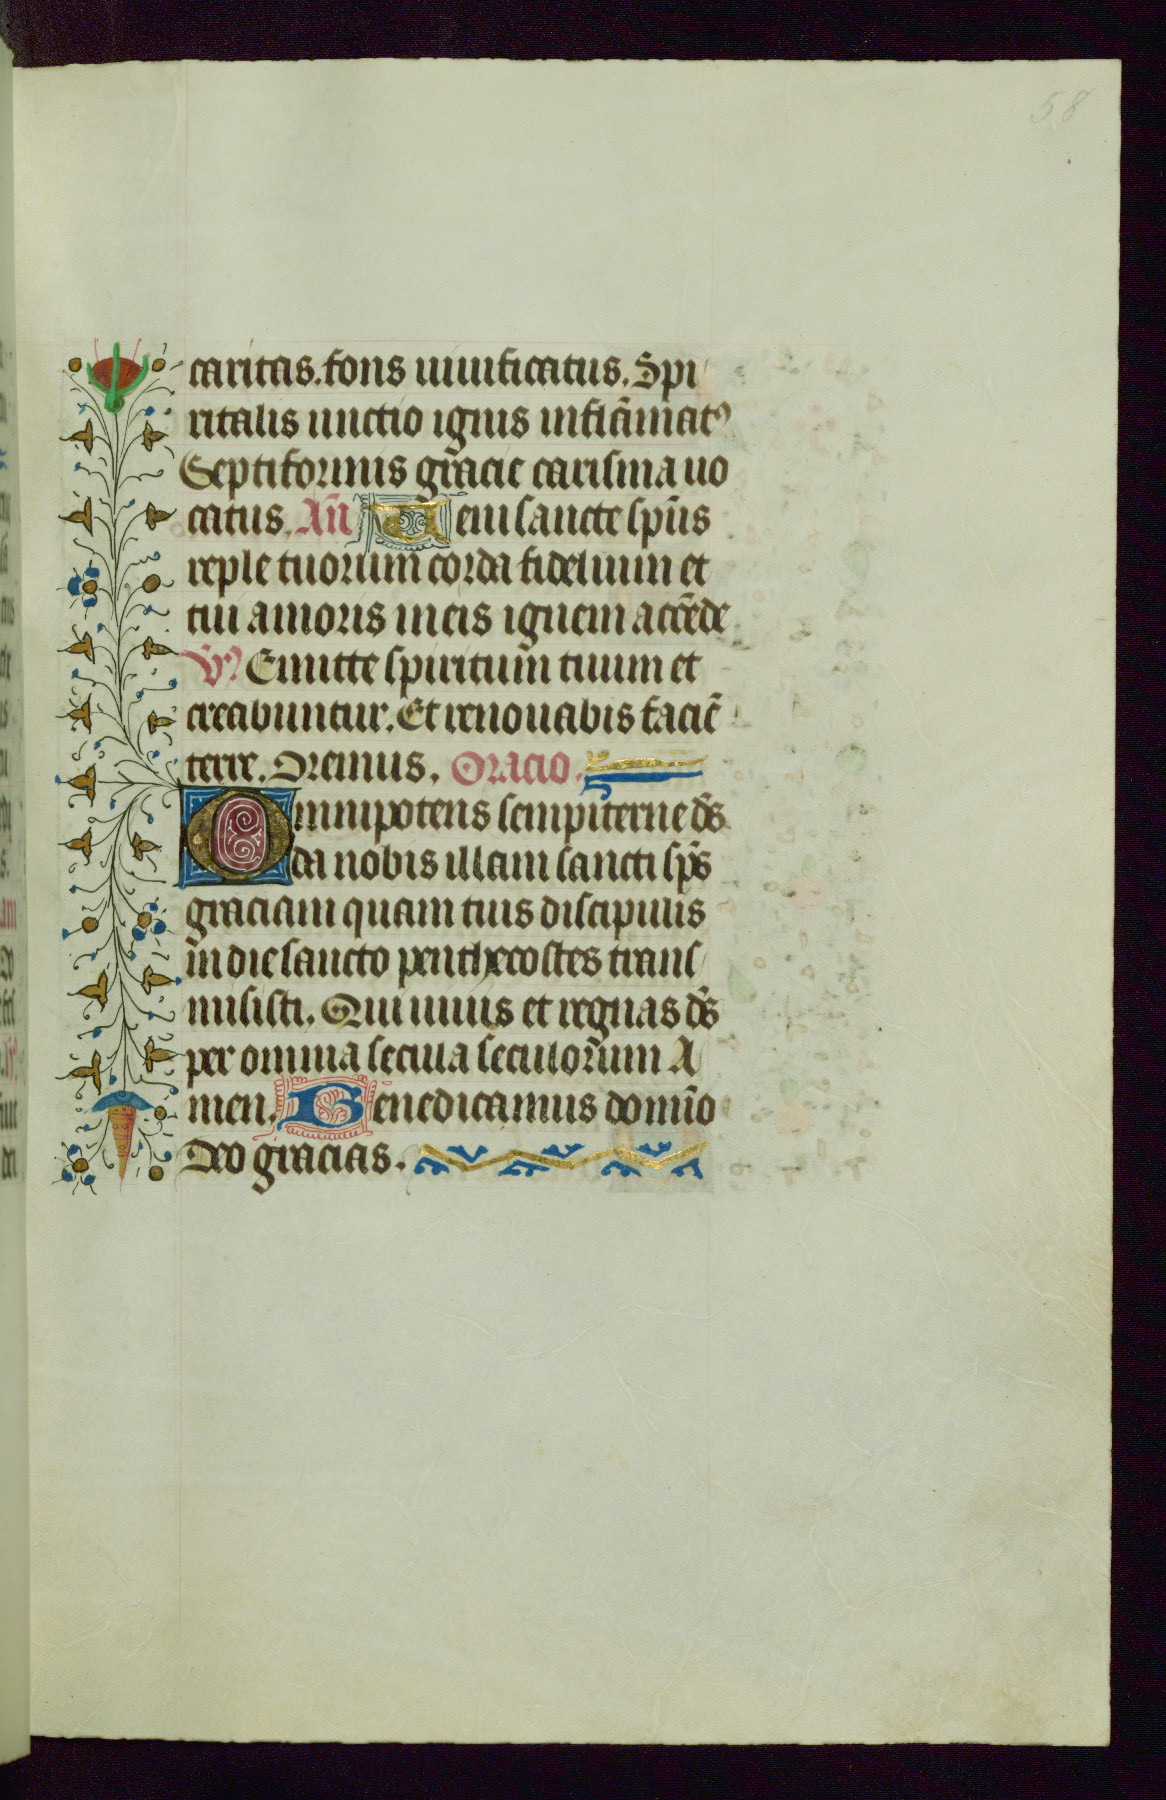 58
caritas. fons uiuificatus. Spi
ritalis unctio ignis inflãmatꝰ
Septiformis gr̃acie carisma uo
catus. Añ Ueni sancte sp̃us
reple tuorum corda fidelium et
tui amoris in eis ignem accẽde
V̷ꝰ Emitte spiritum tuum et
creabuntur. Et renouabis faciẽ
terre. Oremus. Oracio.
Omnipotens sempiterne ds̃
da nobis illam sancti sp̃s
graciam quam tuis discipulis
in die sancto penthecostes trans
misisti. Qui uiuis et regnas ds̃
per omnia secula seculorum A
men. Benedicamus domĩo
Deo gracias.